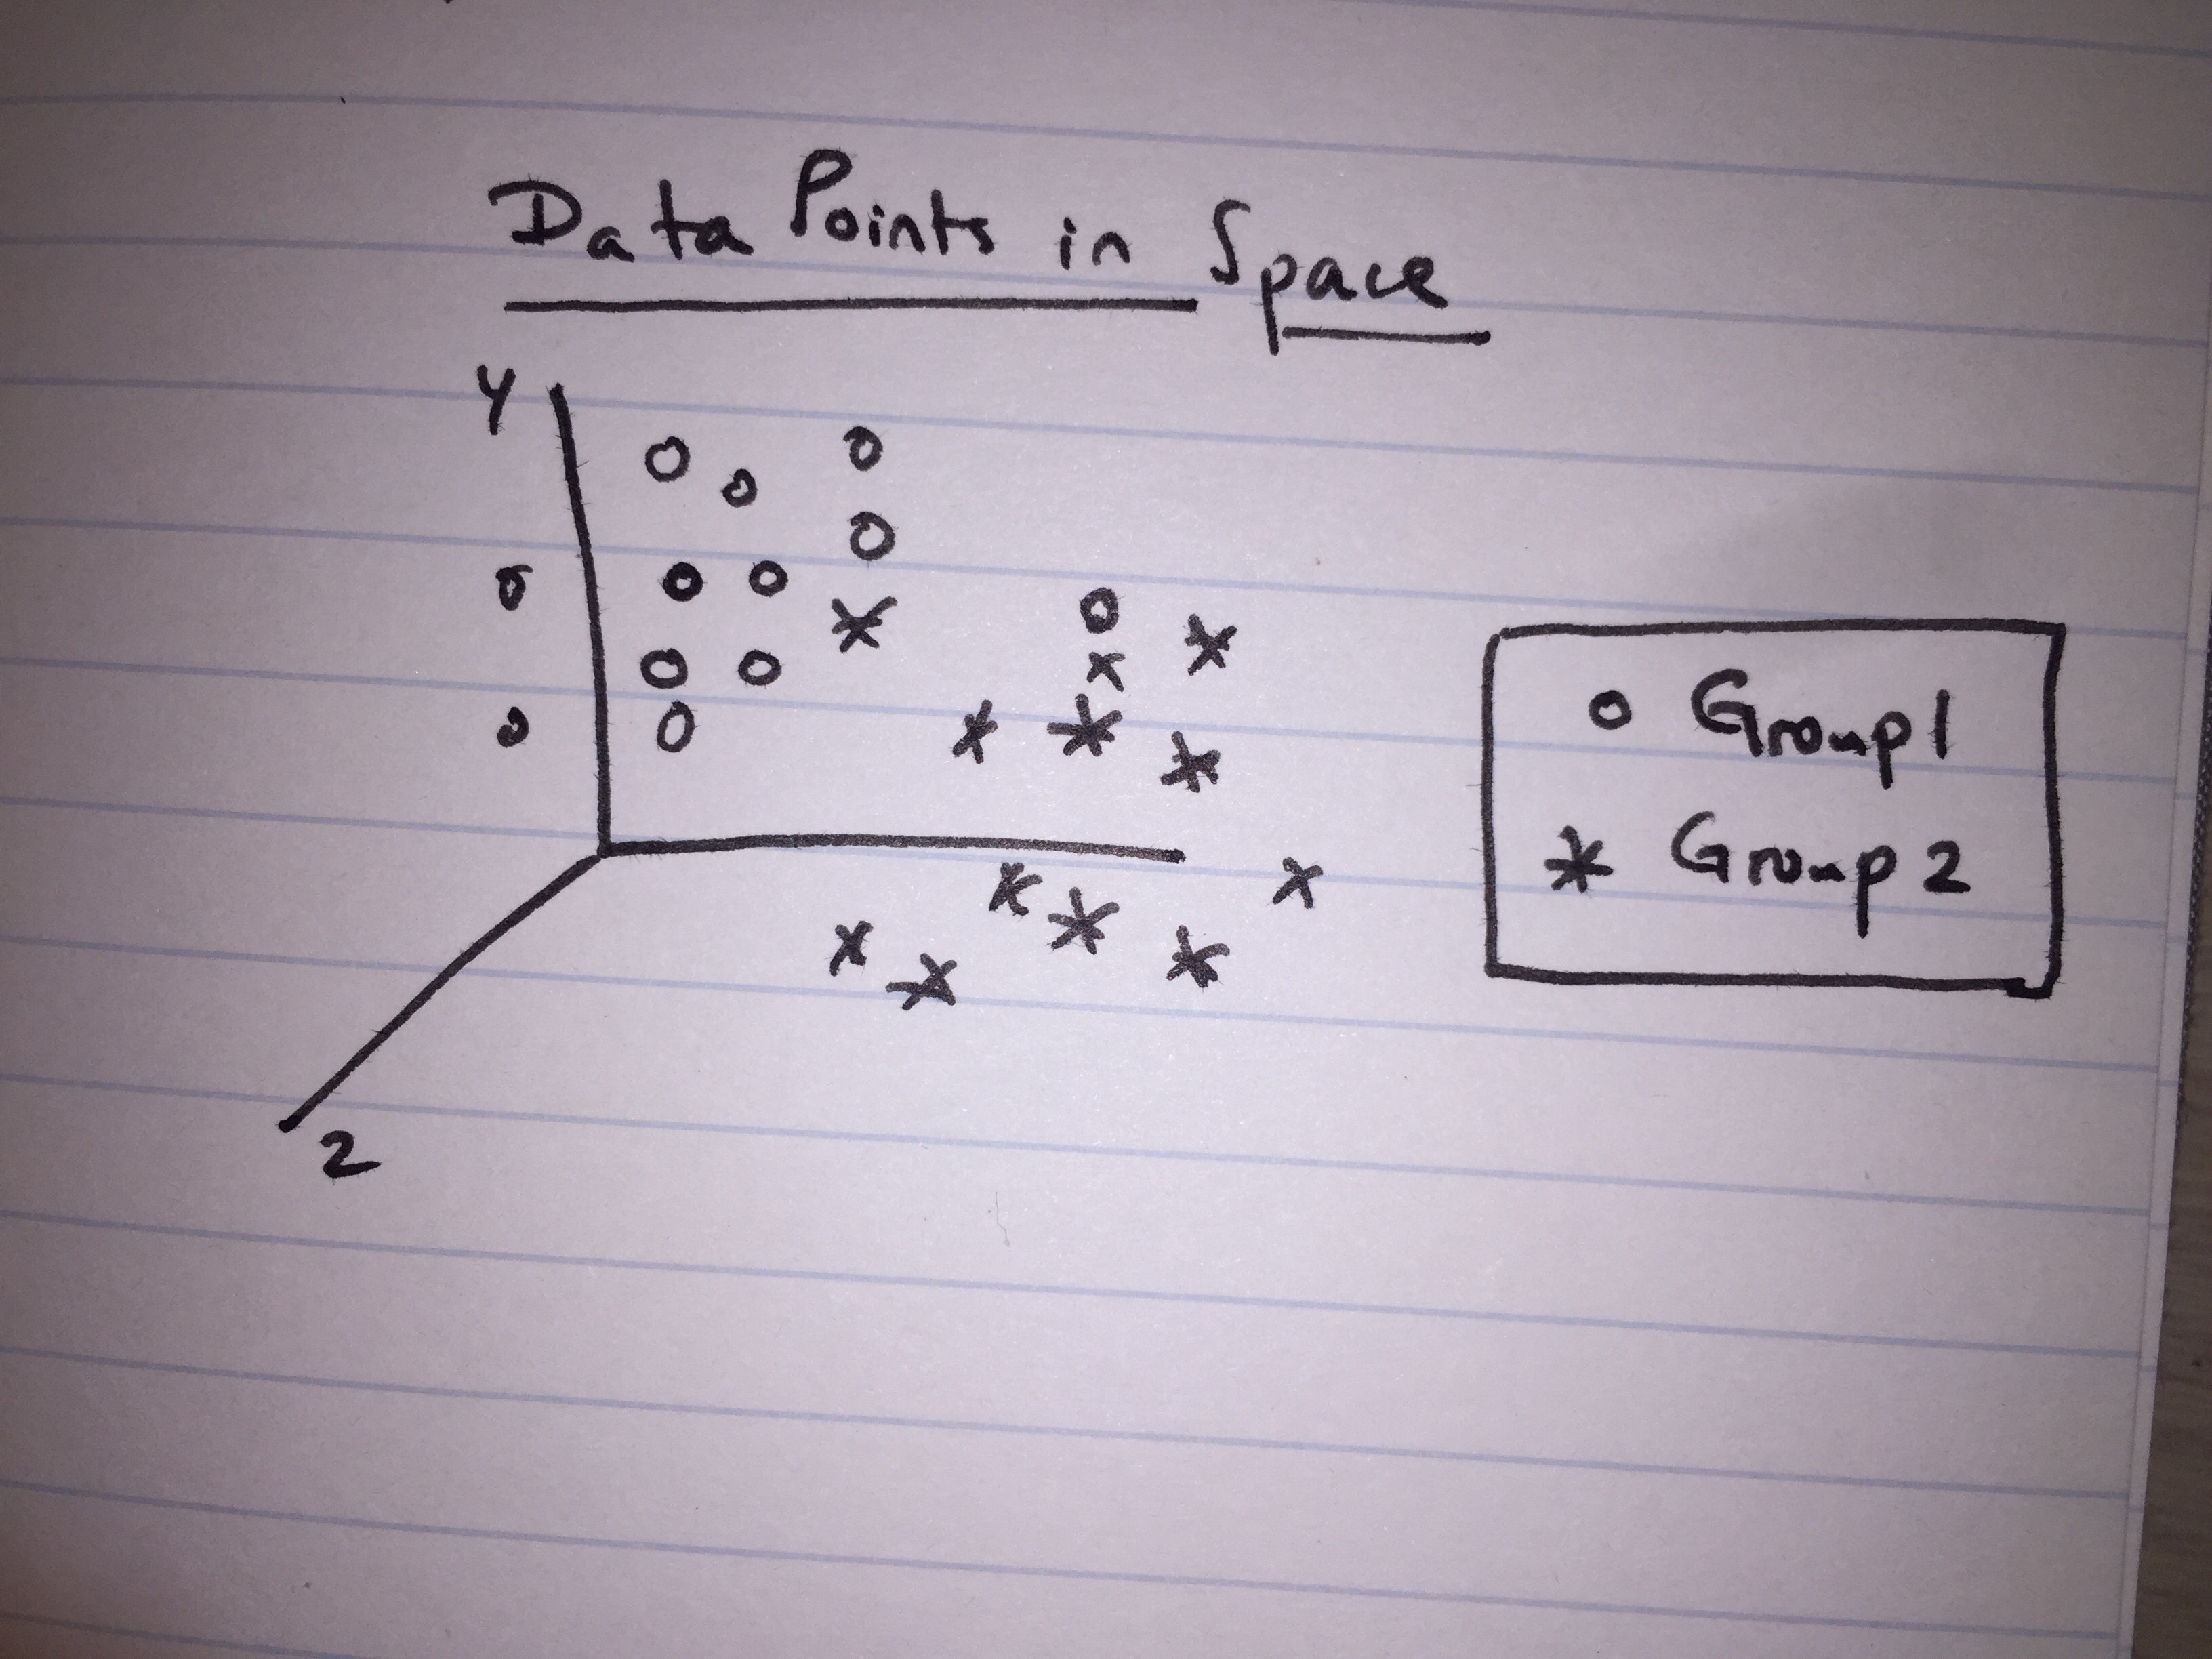 Data Points in Space
Y
o Group1
* Group 2
2